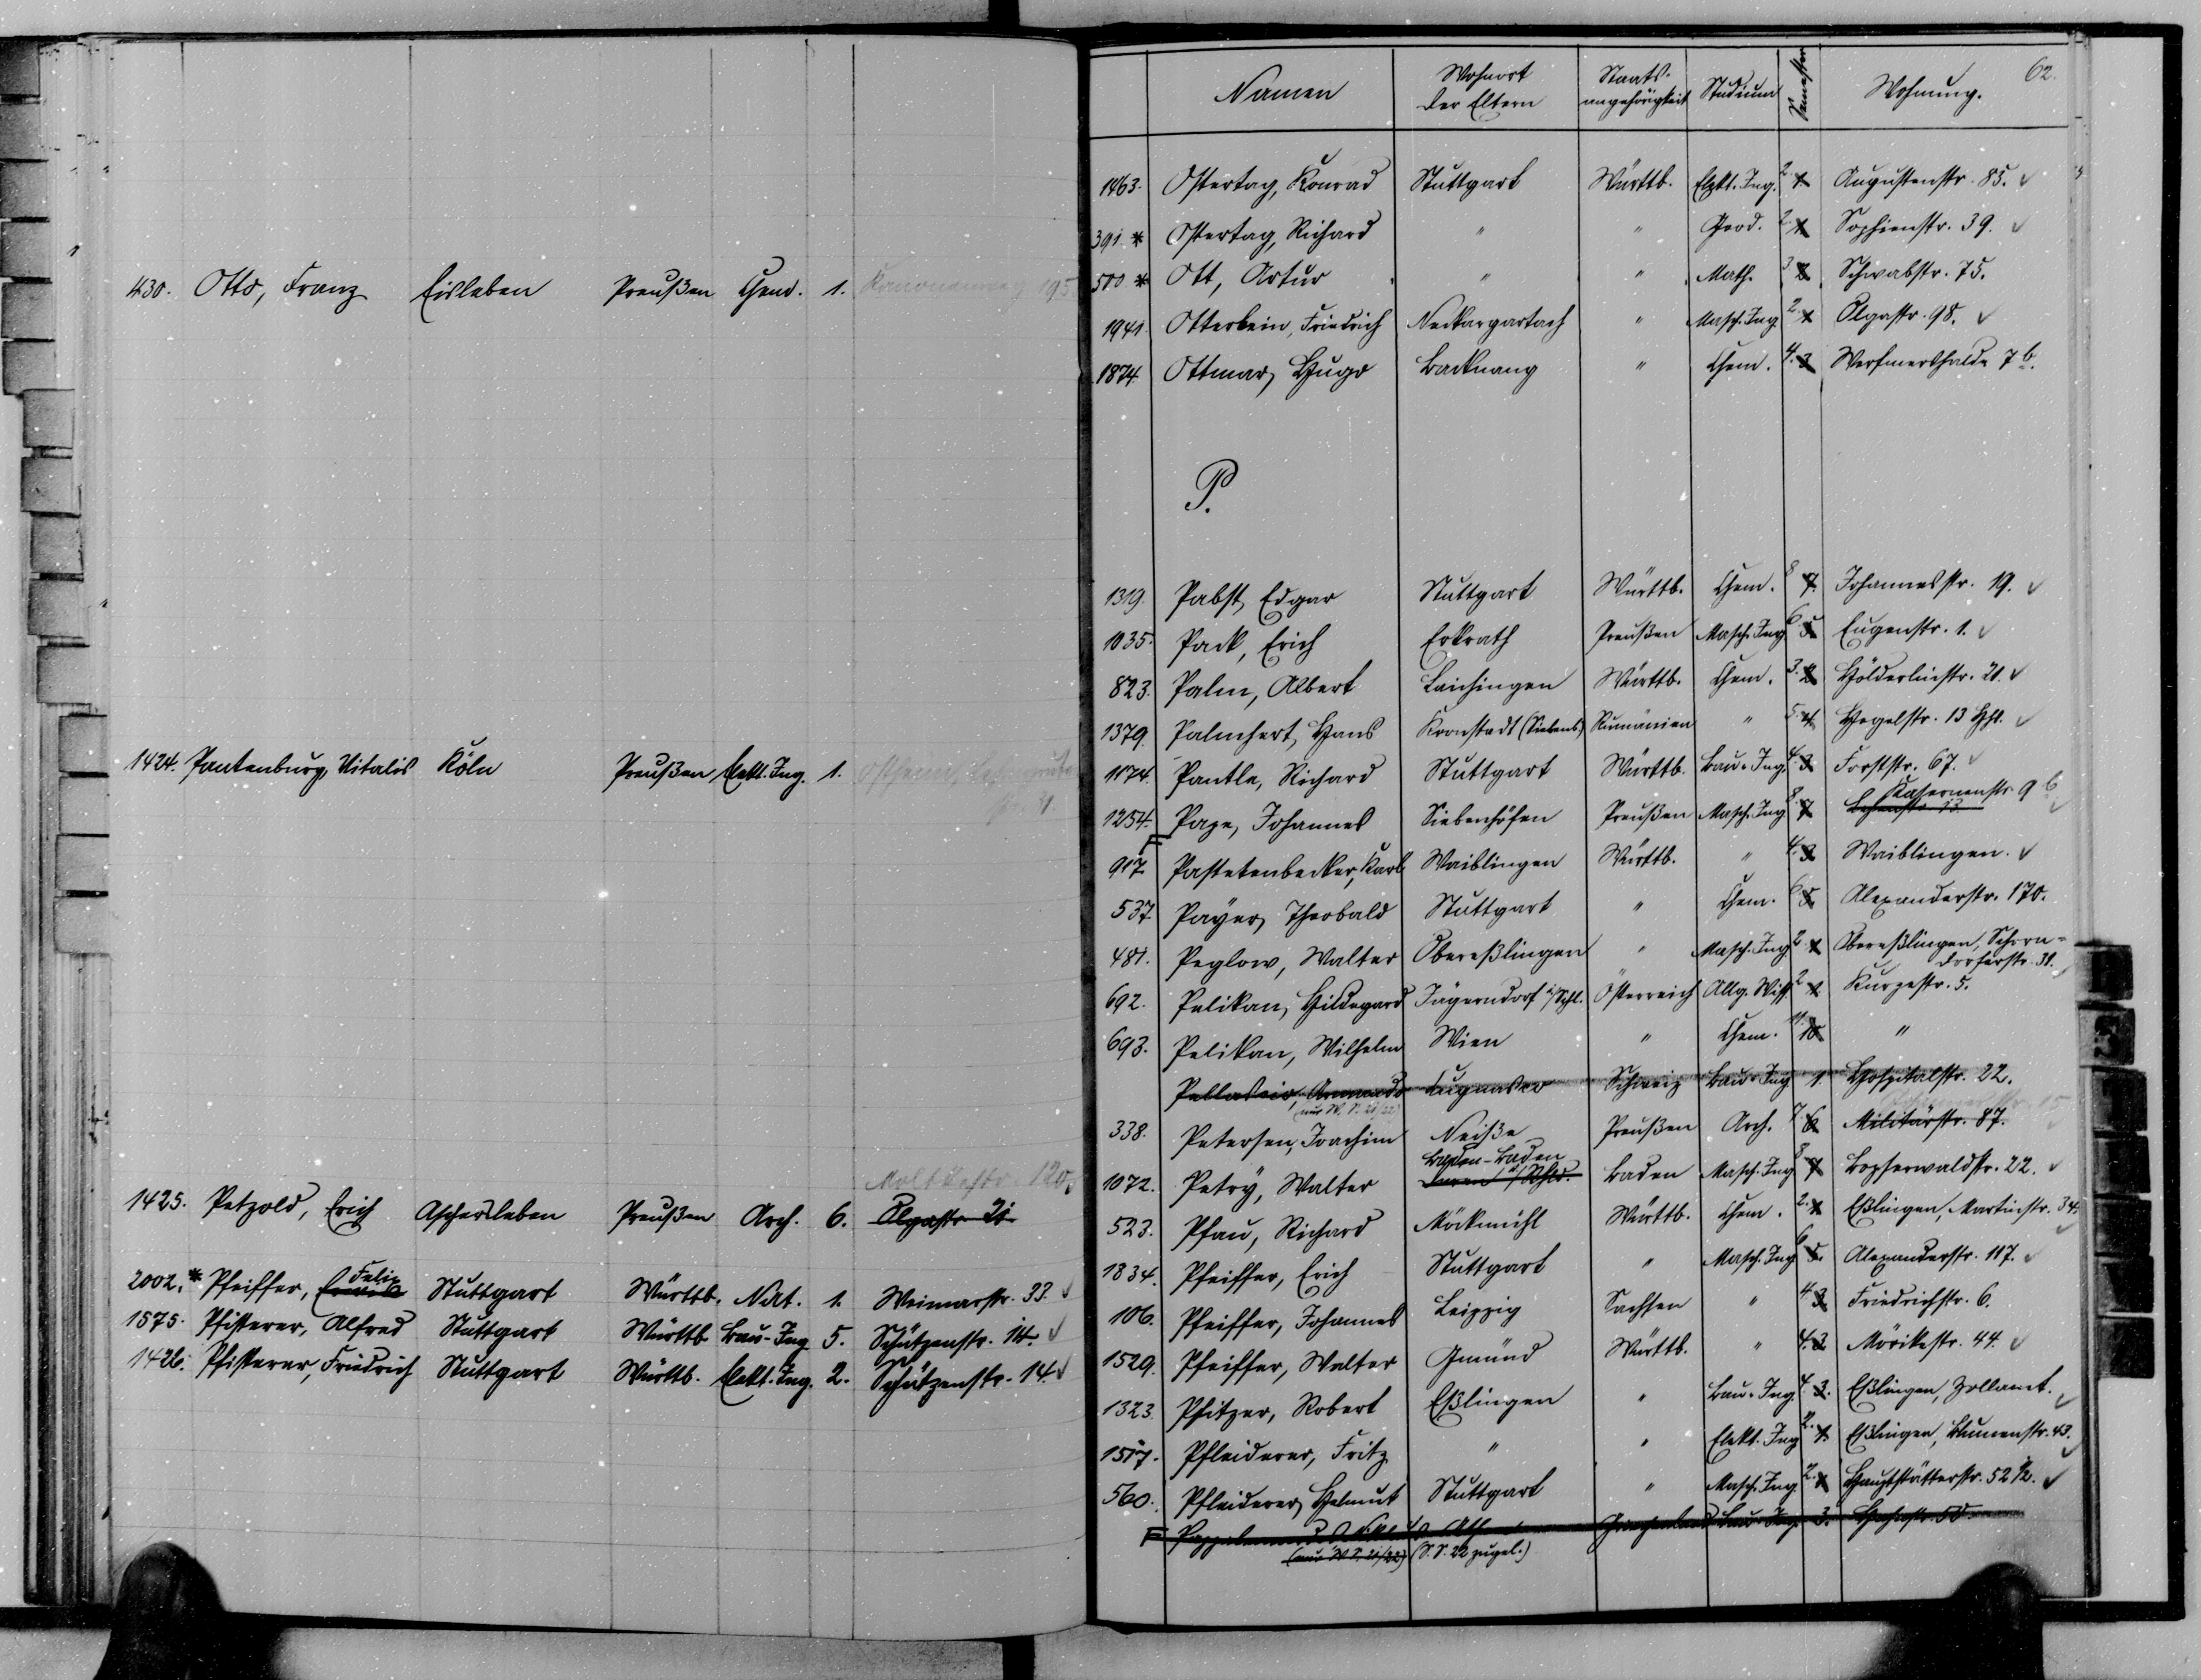 430. Otto, Franz Eisleben Preußen Chem. 1. Kanonenweg 195
1424. Pantenburg, Vitalis Köln Preußen Elekt. Ing. 1. Ostheim,
31
Moltkestr. 120.
1425. Petzold, Erich Aschersleben Preußen Arch. 6. Olgastr. 21
Felix
2002. * Pfeiffer, Stuttgart Württb. Nat. 1. Weimarstr. 33.
1575. Pfisterer, Alfred Stuttgart Württb. Bau-Ing. 5. Schützenstr. 14.
1426. Pfisterer, Friedrich Stuttgart Württb. Elekt. Ing. 2. Schützenstr. 14.
62.
Namen Wohnort der Eltern Staats-angehörigkeit Studium Semester Wohnung.
1463. Ostertag, Konrad Stuttgart Württb. Elekt. Ing. 2. 1. Augustenstr. 85.
391. * Ostertag, Richard " " Geod. 2. 1. Sophienstr. 39.
500 * Ott, Artur " " Math. 3. 2. Schwabstr. 75.
1941. Otterbein, Friedrich Neckargartach " Masch. Ing. 2. 1. Olgastr. 98.
1874 Ottmar, Hugo Backnang " Chem. 4. 3. Werfmershalde 7 b.
P.
1319. Pabst, Edgar Stuttgart Württb. Chem. 8 7. Johannesstr. 19.
1035. Pack, Erich Erkrath Preußen Masch. Ing. 6. 5. Eugenstr. 1.
823. Palm, Albert Laichingen Württb. Chem. 3. 2. Hölderlinstr. 21.
1379. Palmhert, Hans Kronstadt (Siebenb.) Rumänien " 5. 4. Hegelstr. 13 Hhs.
1174. Pantle, Richard Stuttgart Württb. Bau-Ing. 4. 3. Forststr. 67.
1254. Pape, Johannes Siebenhöfen Preußen Masch. Ing. 8. 7. Kasernenstr. 9 b
F
917. Pastetenbecker, Karl Waiblingen Württb. " 4. 3. Waiblingen.
537. Payer, Theobald Stuttgart " Chem. 6 5. Alexanderstr. 170.
481. Peglow, Walter Obereßlingen " Masch. Ing. 2. 1. Obereßlingen, Schorn-
dorferstr. 31.
692. Pelikan, Hildegard Jägerndorf i/Schl. Österreich Allg. Wiss. 2. 1. Kurzestr. 5.
693. Pelikan, Wilhelm Wien " Chem. 11. 10. "
Pellascio, Armando Cugnasco Schweiz Bau-Ing. 1. Hospitalstr. 22.
(nur W. S. 21/22)
338. Petersen, Joachim Neiße Preußen Arch. 7. 6. Militärstr. 87.
Baden-Baden
1072. Petry, Walter Baden Masch. Ing. 8 7. Bopserwaldstr. 22.
523. Pfau, Richard Möckmühl Württb. Chem. 2. 1. Eßlingen, Martinstr. 34.
1834. Pfeiffer, Erich Stuttgart " Masch. Ing. 6 5. Alexanderstr. 117.
106. Pfeiffer, Johannes Leipzig Sachsen " 4 3. Friedrichstr. 6.
1529. Pfeiffer, Walter Gmünd Württb. " 4. 3. Mörikestr. 44.
1323. Pfitzer, Robert Eßlingen " Bau-Ing. 4. 3. Eßlingen, Zollamt.
1517. Pfleiderer, Fritz " " Elekt. Ing. 2. 1. Eßlingen, Blumenstr. 43.
560. Pfleiderer, Helmut Stuttgart " Masch. Ing. 2. 1. Hauptstätterstr. 52 1/2.
F Griechenland Bau-Ing. 3.
(nur W. S. 21/22) (S. S. 22 zugel.)